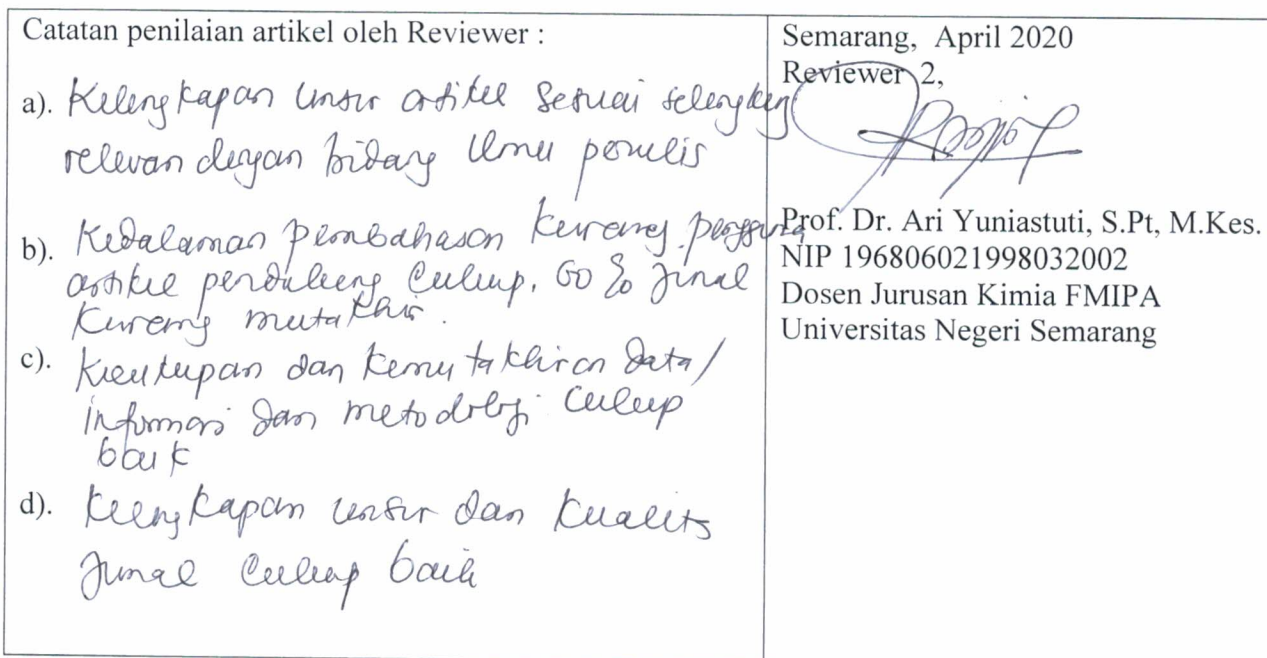 Catatan penilaian artikel oleh Reviewer :
a). Kelengkapan unsur artikel sesuai
relevan dengan bidang Ilmu penulis
b). Kedalaman pembahasan kurang.
artikel pendukung Cukup. 60 % Jurnal
Kurang mutakhir.
c). Kecukupan dan Kemutakhiran Data/
Informasi dan metodologi Cukup
baik
d). Kelengkapan unsur dan Kualitas
Jurnal Cukup baik
Semarang, April 2020
Reviewer 2,
Prof. Dr. Ari Yuniastuti, S.Pt, M.Kes.
NIP 196806021998032002
Dosen Jurusan Kimia FMIPA
Universitas Negeri Semarang